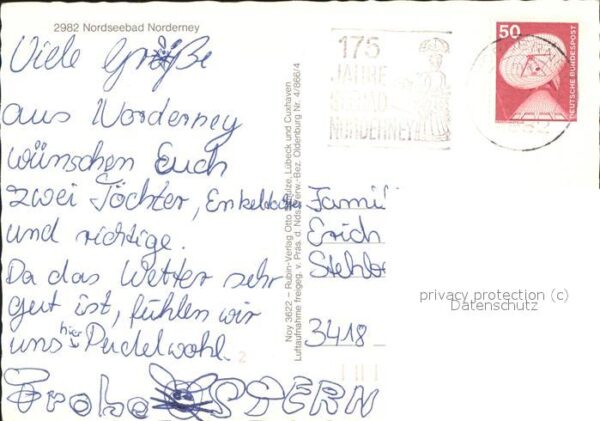 2982 Nordseebad Norderney
Viele Grüße
aus Norderney
wünschen Euch
zwei Töchter, Enkeltochter
und richtige.
Da das Wetter sehr
gut ist, fühlen wir
uns hier Pudelwohl.
Frohe OSTERN
Noy 3622 – Rubin-Verlag Otto Schulze, Lübeck und Cuxhaven
Luftaufnahme freigeg. v. Präs. d. Nds. Verw.-Bez. Oldenburg Nr. 4/866/4
175
JAHRE
NORDERNEY
50
DEUTSCHE BUNDESPOST
Erich
3418
privacy protection (c)
Datenschutz
2